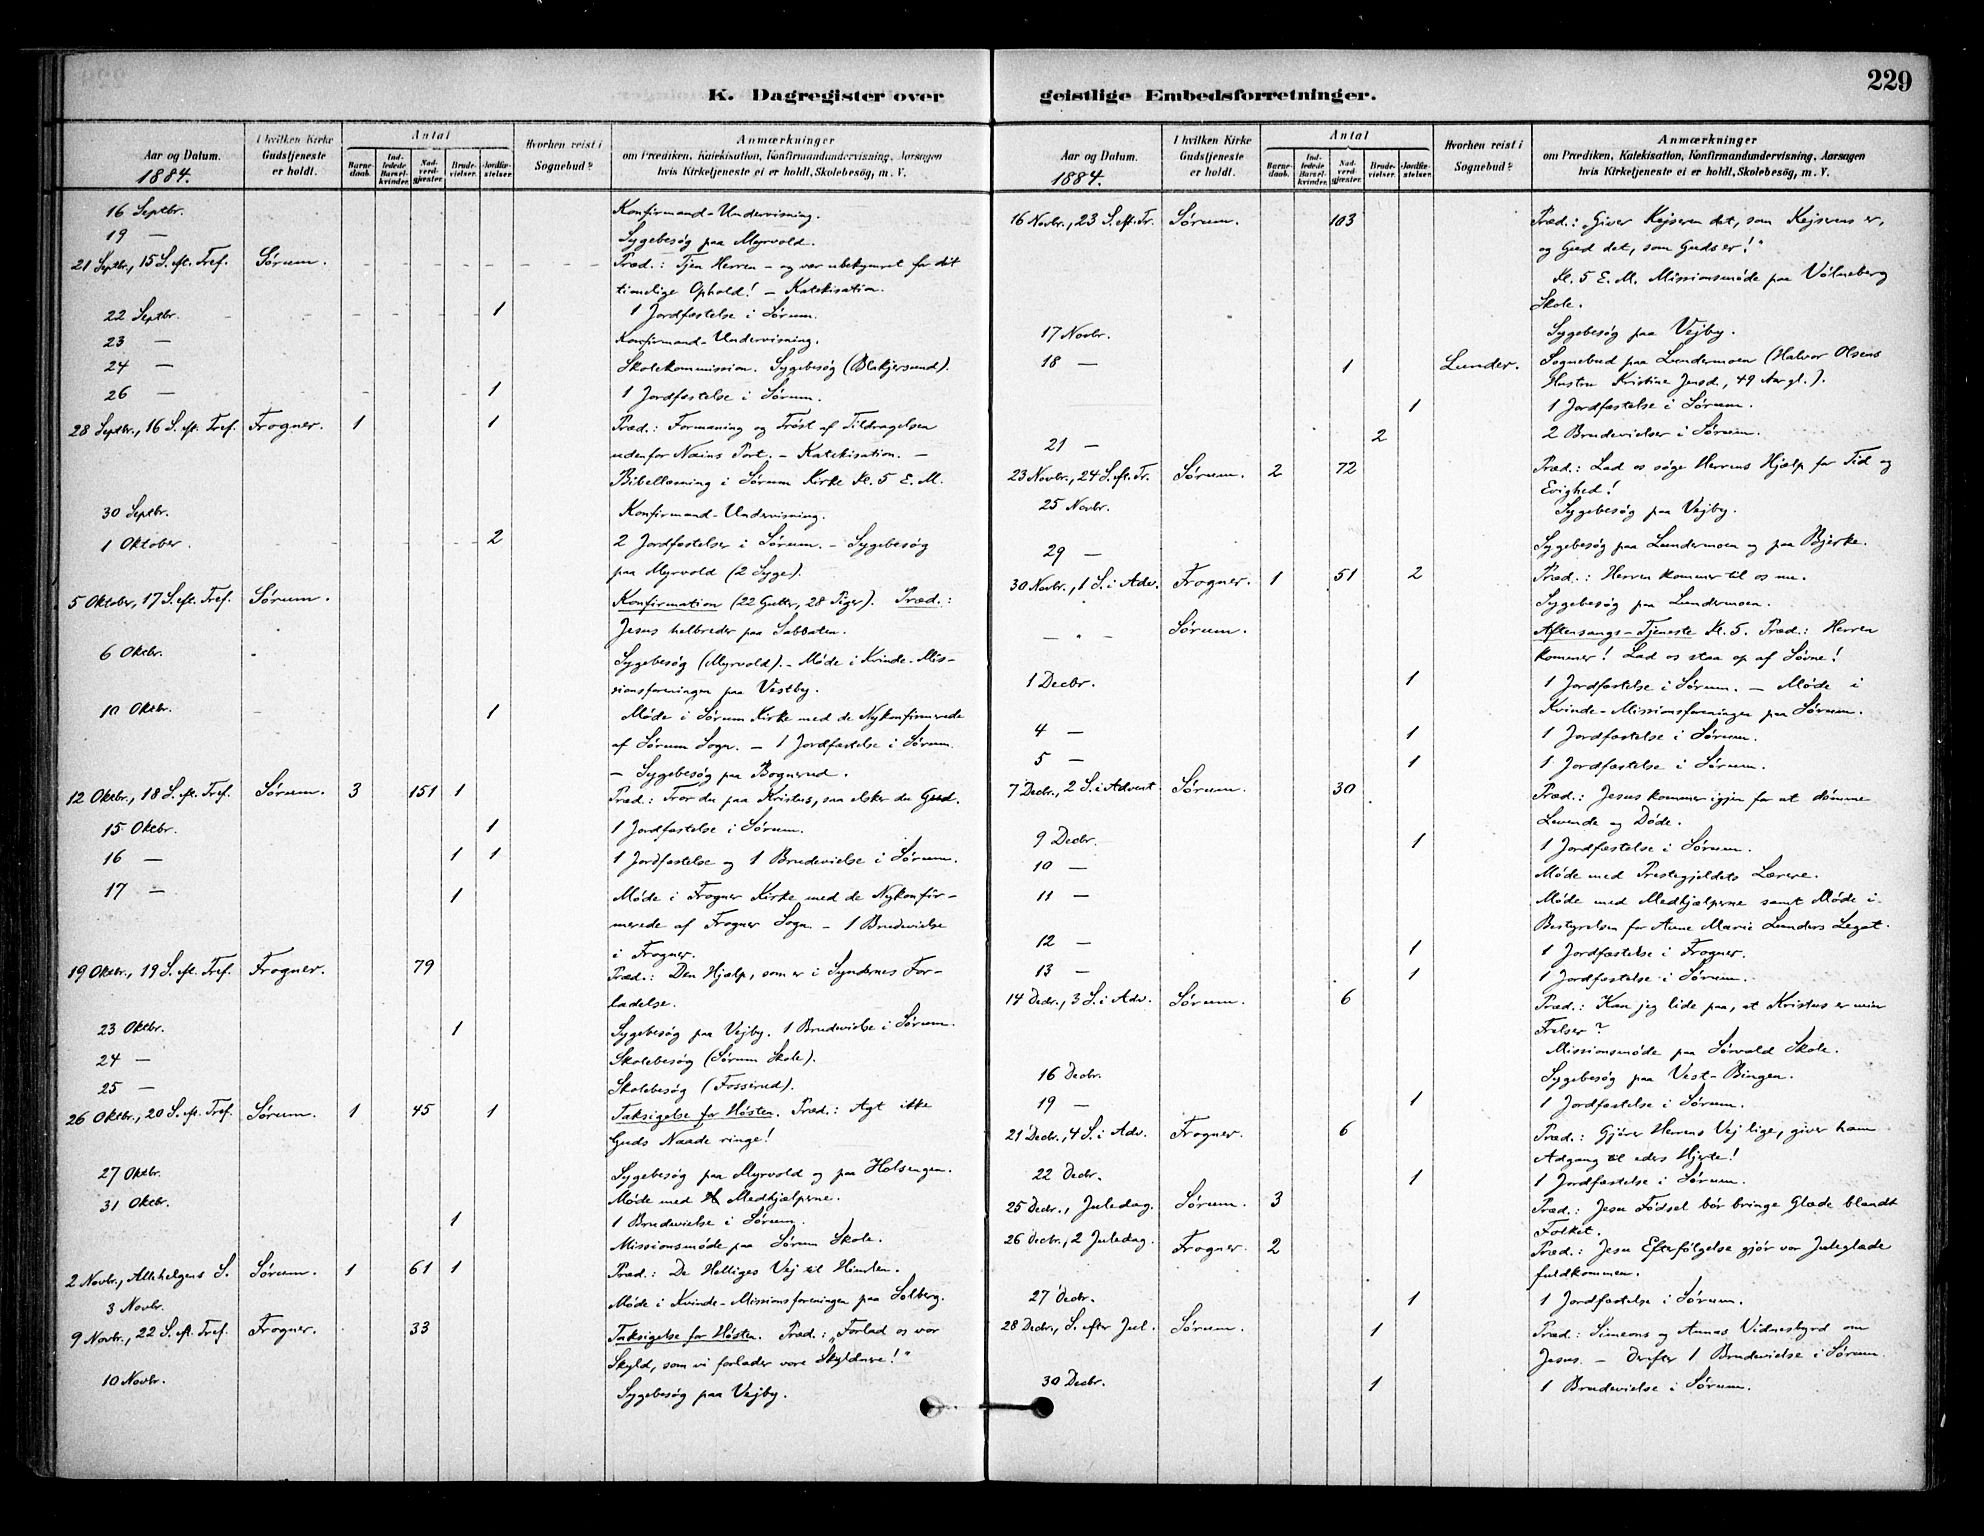 229
K. Dagregister over
Aar og Datum.
1884.
I hvilken Kirke Gudstjeneste er holdt.
Antal
Barnedaab.
Indledede Barselkvinder.
Nadverdgjæster.
Brudevielser.
Jordfæstelser.
Hvorhen reist i Sognebud?
Anmærkninger
om Prædiken, Katekisation, Konfirmandundervisning, Aarsagen
hvis Kirketjeneste ei er holdt, Skolebesøg, m. V.
16 Septbr. Konfirmand-Undervisning.
19 — Sygebesøg paa Myrvold.
21 Septbr., 15 S. eft. Tref. Sørum. Præd.: Tjen Herren – og vær ubekymret for dit
timelige Ophold! – Katekisation.
22 Septbr. 1 1 Jordfæstelse i Sørum.
23 — Konfirmand-Undervisning.
24 — Skolekommission. Sygebesøg (Blakjersund).
26 — 1 1 Jordfæstelse i Sørum.
28 Septbr., 16 S. eft. Tref. Frogner. 1 1 Præd.: Formaning og Trøst af Tildragelsen
udenfor Nains Port. – Katekisation. –
Bibellæsning i Sørum Kirke Kl. 5 E. M.
30 Septbr. Konfirmand-Undervisning.
1 Oktober. 2 2 Jordfæstelser i Sørum. – Sygebesøg
paa Myrvold (2 Syge).
5 Oktober, 17 S. eft. Tref. Sørum. Konfirmation (22 Gutter, 28 Piger). Præd.:
Jesus helbreder paa Sabbaten.
6 Oktbr. Sygebesøg (Myrvold). – Møde i Kvinde-Mis-
sionsforeningen paa Vestby.
10 Oktbr. 1 Møde i Sørum Kirke med de Nykonfirmerede
af Sørum Sogn. – 1 Jordfæstelse i Sørum.
– Sygebesøg paa Bognerud.
12 Oktbr., 18 S. eft. Tref. Sørum. 3 151 1 Præd.: Tror du paa Kristus, saa elsker du Gud.
15 Oktbr. 1 1 Jordfæstelse i Sørum.
16 — 1 1 1 Jordfæstelse og 1 Brudevielse i Sørum.
17 — 1 Møde i Frogner Kirke med de Nykonfir-
merede af Frogner Sogn. – 1 Brudevielse
i Frogner.
19 Oktbr., 19 S. eft. Tref. Frogner. 79 Præd.: Den Hjælp, som er i Syndernes For-
ladelse.
23 Oktbr. 1 Sygebesøg paa Vejby. 1 Brudevielse i Sørum.
24 — Skolebesøg (Sørum Skole).
25 — Skolebesøg (Fosserud).
26 Oktbr., 20 S. eft. Tref. Sørum. 1 45 1 Taksigelse for Høsten. Præd.: Agt ikke
Guds Naade ringe!
27 Oktbr. Sygebesøg paa Myrvold og paa Holsengen.
31 Oktbr. Møde med Medhjælperne.
1 1 Brudevielse i Sørum.
Missionsmøde paa Sørum Skole.
2 Novbr., Allehelgens S. Sørum. 1 61 1 Præd.: De Helliges Vej til Himlen.
3 Novbr. Møde i Kvinde-Missionsforeningen paa Solberg.
9 Novbr., 22 S. eft. Tref. Frogner. 33 Taksigelse for Høsten. Præd.: „Forlad os vor
Skyld, som vi forlader vore Skyldnere!“
10 Novbr. Sygebesøg paa Vejby.
geistlige Embedsforretninger.
Aar og Datum.
1884.
I hvilken Kirke Gudstjeneste er holdt.
Antal
Barnedaab.
Indledede Barselkvinder.
Nadverdgjæster.
Brudevielser.
Jordfæstelser.
Hvorhen reist i Sognebud?
Anmærkninger
om Prædiken, Katekisation, Konfirmandundervisning, Aarsagen
hvis Kirketjeneste ei er holdt, Skolebesøg, m. V.
16 Novbr., 23 S. eft. Tr. Sørum. 103 Præd.: „Giver Kejseren det, som Kejserens er,
og Gud det, som Guds er!“
Kl. 5 E. M. Missionsmøde paa Vølneberg
Skole.
17 Novbr. Sygebesøg paa Vejby.
18 — 1 Lunder. Sognebud paa Lundermoen (Halvor Olsens
Hustru Kristine Jensd., 49 Aar gl.).
1 1 Jordfæstelse i Sørum.
21 — 2 2 Brudevielser i Sørum.
23 Novbr., 24 S. eft. Tr. Sørum. 2 72 Præd.: Lad os søge Herrens Hjælp for Tid og
Evighed!
25 Novbr. Sygebesøg paa Vejby.
29 — Sygebesøg paa Lundermoen og paa Bjerke.
30 Novbr., 1 S. i Adv. Frogner. 1 51 2 Præd.: Herren kommer til os nu.
Sygebesøg paa Lundermoen.
— „ — Sørum. Aftensangs-Tjeneste Kl. 5. Præd.: Herren
kommer! Lad os staa op af Søvne!
1 Decbr. 1 1 Jordfæstelse i Sørum. – Møde i
Kvinde-Missionsforeningen paa Sørum.
4 — 1 1 Jordfæstelse i Sørum.
5 — 1 1 Jordfæstelse i Sørum.
7 Decbr., 2 S. i Advent Sørum. 30 Præd.: Jesus kommer igjen for at dømme
Levende og Døde.
9 Decbr. 1 1 Jordfæstelse i Sørum.
10 — Møde med Prestegjeldets Lærere.
11 — Møde med Medhjælperne samt Møde i
Bestyrelsen for Anne Marie Lunders Legat.
12 — 1 1 Jordfæstelse i Frogner.
13 — 1 1 Jordfæstelse i Sørum.
14 Decbr., 3 S. i Adv. Sørum. 6 Præd.: Kan jeg lide paa, at Kristus er min
Frelser?
Missionsmøde paa Sørvald Skole.
16 Decbr. Sygebesøg paa Vest-Bingen.
19 — 1 1 Jordfæstelse i Sørum.
21 Decbr., 4 S. i Adv. Frogner. 6 Præd.: Gjører Herrens Vej lige, giver ham
Adgang til eders Hjerte!
22 Decbr. 1 1 Jordfæstelse i Sørum.
25 Decbr., Juledag. Sørum. 3 Præd.: Jesu Fødsel bør bringe Glæde blandt
Folket.
26 Decbr., 2 Juledag. Frogner. 2 Præd.: Jesu Efterfølgelse gjør vor Juleglæde
fuldkommen.
27 Decbr. 1 1 Jordfæstelse i Sørum.
28 Decbr., S. efter Jul. Sørum. 1 Præd.: Simeons og Annas Vidnesbyrd om
Jesus. – Derefter 1 Brudevielse i Sørum.
30 Decbr. 1 1 Brudevielse i Sørum.